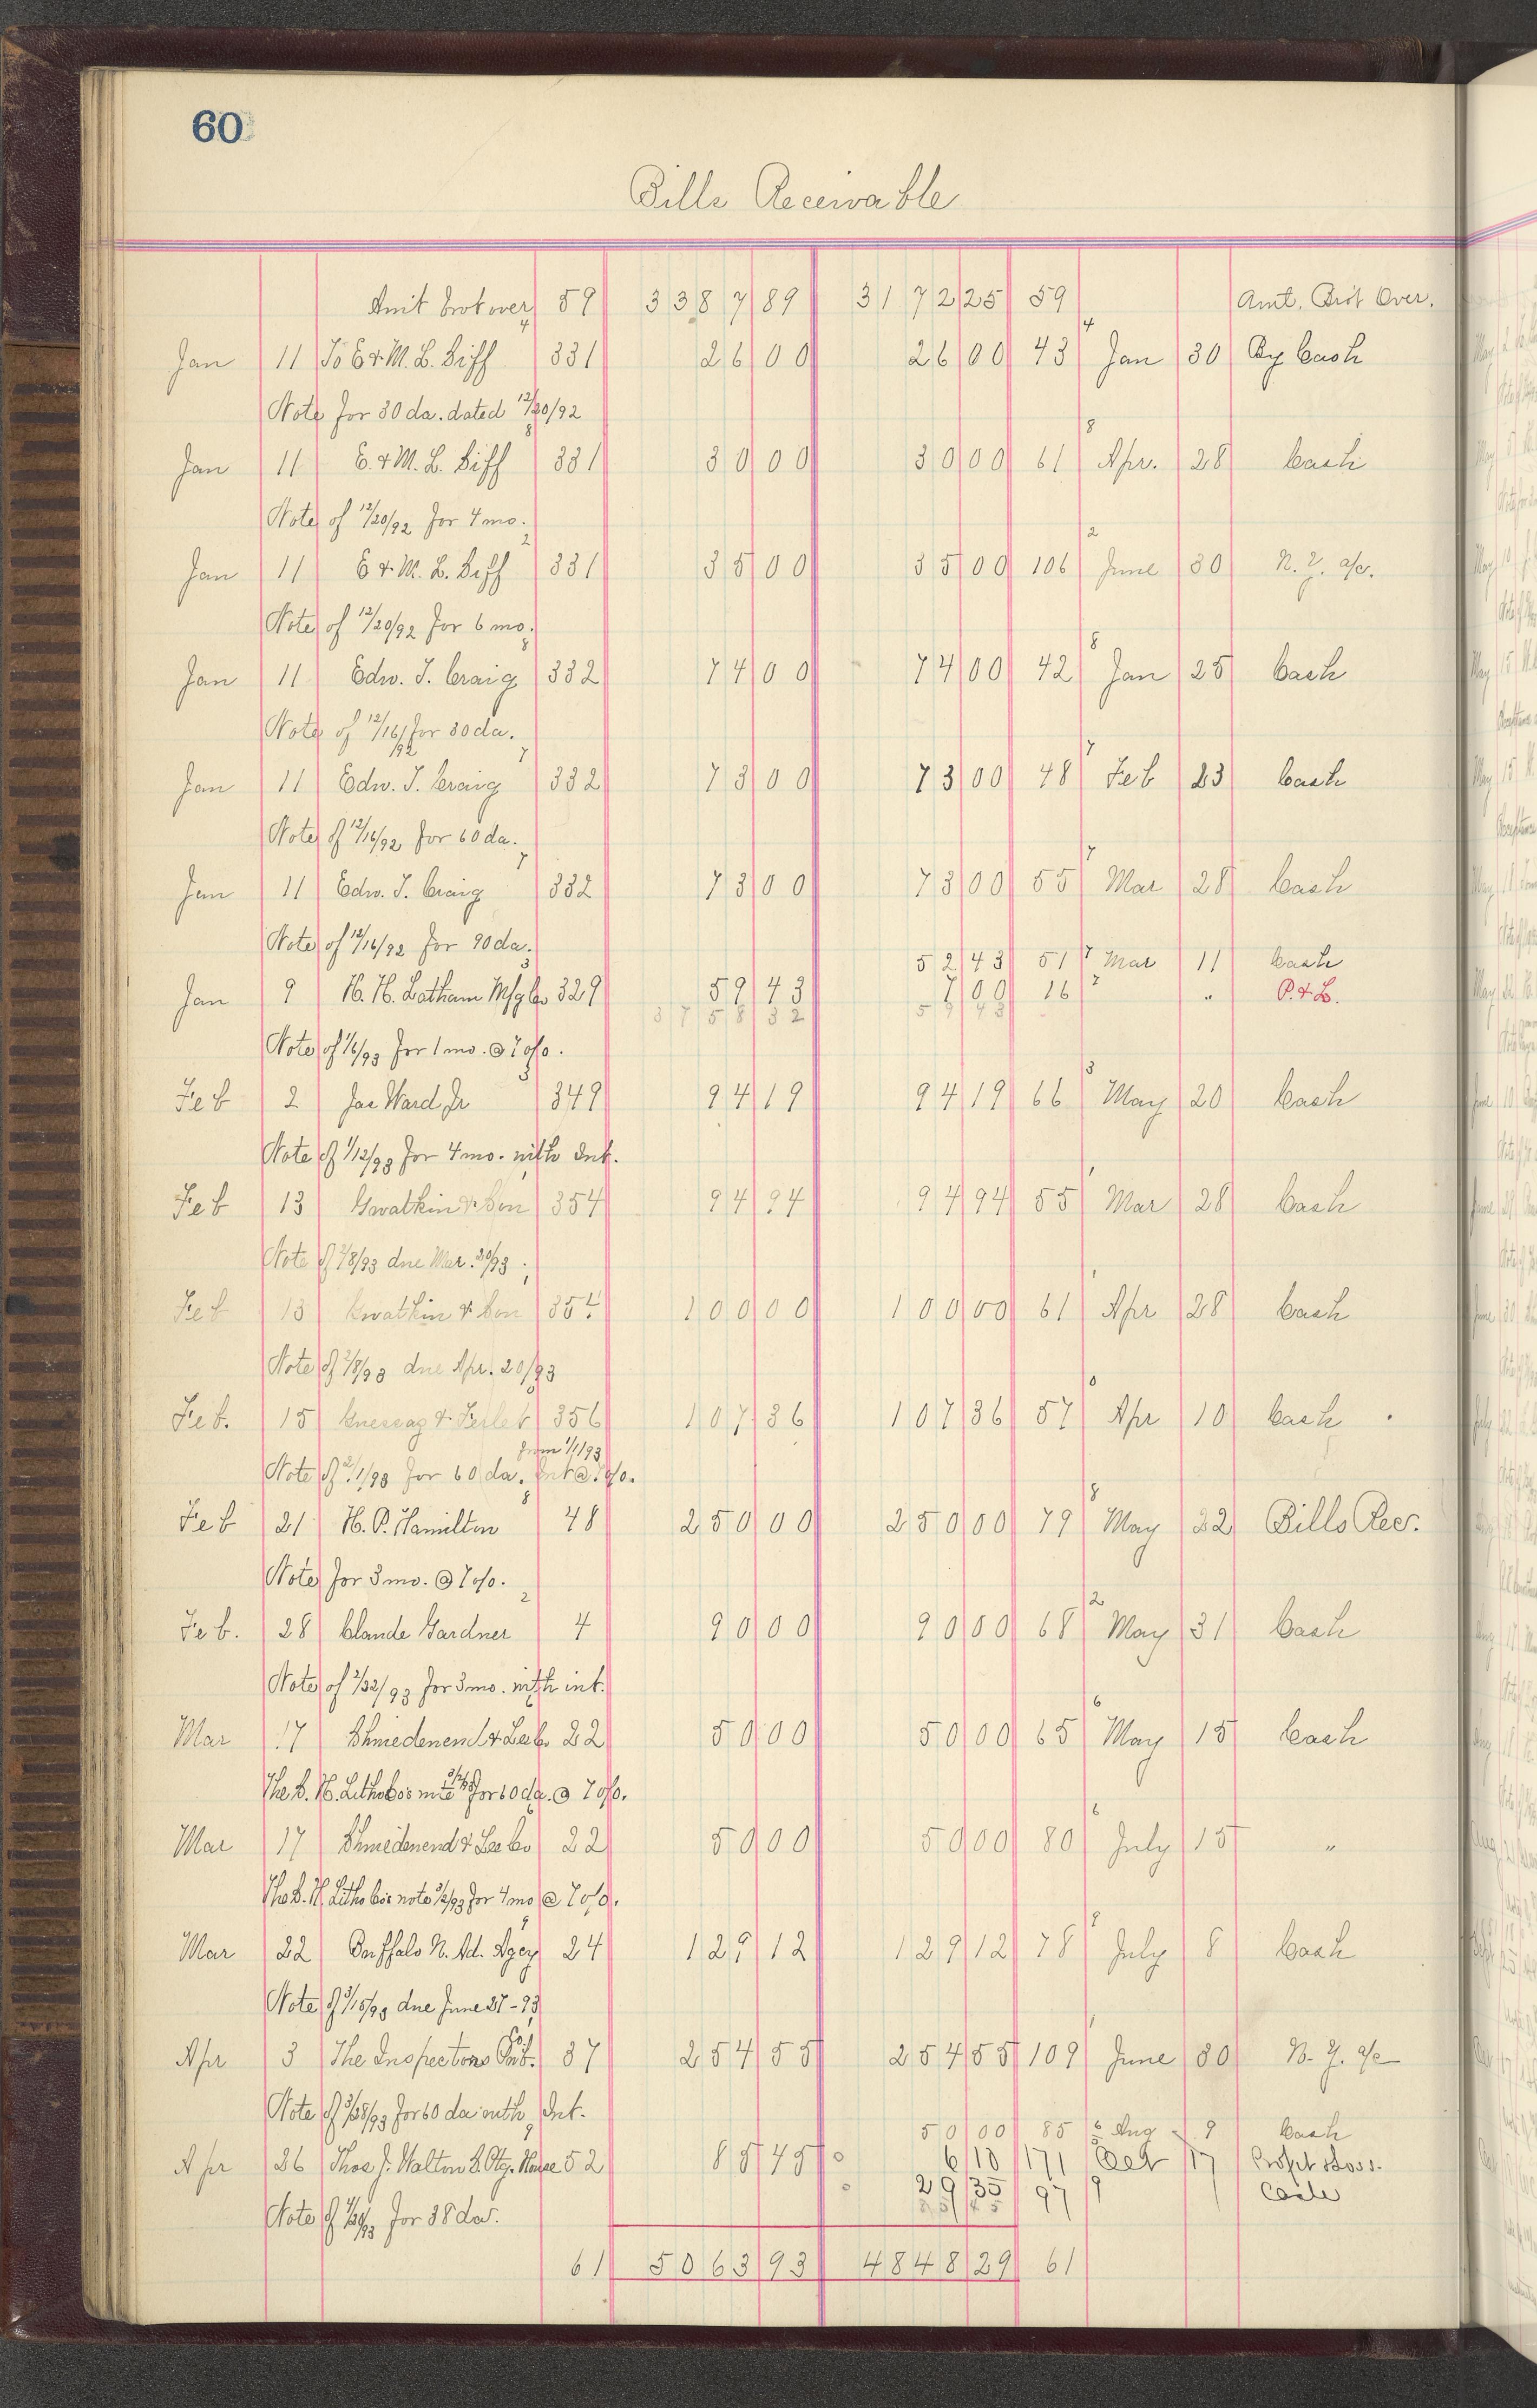 60
Bills Receivable
Amt brot over 59 3387 89 3172 25 59 Amt. Brot Over.
Jan 11 To E & M. L. Siff 331 26 00 26 00 43 Jan 30 By Cash
Note for 30 da. dated 12/20/92
Jan 11 E. & M. L. Siff 331 30 00 30 00 61 Apr. 28 Cash
Note of 12/20/92 for 4 mo.
Jan 11 E & M. L. Siff 331 35 00 35 00 106 June 30 N. Y. a/c.
Note of 12/20/92 for 6 mo.
Jan 11 Edw. J. Craig 332 74 00 74 00 42 Jan 25 Cash
Note of 12/16/92 for 30 da.
Jan 11 Edw. J. Craig 332 73 00 73 00 48 Feb 23 Cash
Note of 12/16/92 for 60 da.
Jan 11 Edw. J. Craig 332 73 00 73 00 55 Mar 28 Cash
Note of 12/16/92 for 90 da.
52 43 51 Mar 11 Cash
Jan 9 H. H. Latham Mfg Co 329 59 43 7 00 16 " P. & L.
3758 32 59 43
Note of 1/6/93 for 1 mo. @ 7 o/o.
Feb 2 Jas Ward Jr 349 94 19 94 19 66 May 20 Cash
Note of 1/12/93 for 4 mo. with Int.
Feb 13 Gwatkin & Son 354 94 94 94 94 55 Mar 28 Cash
Note of 2/8/93 due Mar. 20/93
Feb 13 Gwatkin & Son 354 100 00 100 00 61 Apr 28 Cash
Note of 2/8/93 due Apr. 20/93
Feb. 15 356 107 36 107 36 57 Apr 10 Cash
from 1/1/93
Note of 2/1/93 for 60 da. Int @ 7 o/o.
Feb 21 H. P. Hamilton 48 250 00 250 00 79 May 22 Bills Rec.
Note for 3 mo. @ 7 o/o.
Feb. 28 Claude Gardner 4 90 00 90 00 68 May 31 Cash
Note of for 3 mo. with int.
Mar 17 Shmedenend & Lee Co 22 50 00 50 00 65 May 15 Cash
The C. H. Litho Co's note for 60 da. @ 7 o/o.
Mar 17 Shmedenend & Lee Co 22 50 00 50 00 80 July 15 "
The C. H. Litho Co's note for 4 mo @ 7 o/o.
Mar 22 Buffalo N. Ad. Agey 24 129 12 129 12 78 July 8 Cash
Note of 3/15/93 due June 27-93
Apr 3 The Inspectors Pub. Co. 37 254 55 254 55 109 June 30 N. Y. a/c
Note of 3/28/93 for 60 da with Int.
50 00 85 Aug 9 Cash
Apr 26 Thos J. Walton 52 85 45 6 10 171 Oct 17 Profit & Loss.
29 35 97 Cash
85 45
Note of for 38 da.
61 5063 93 4848 29 61